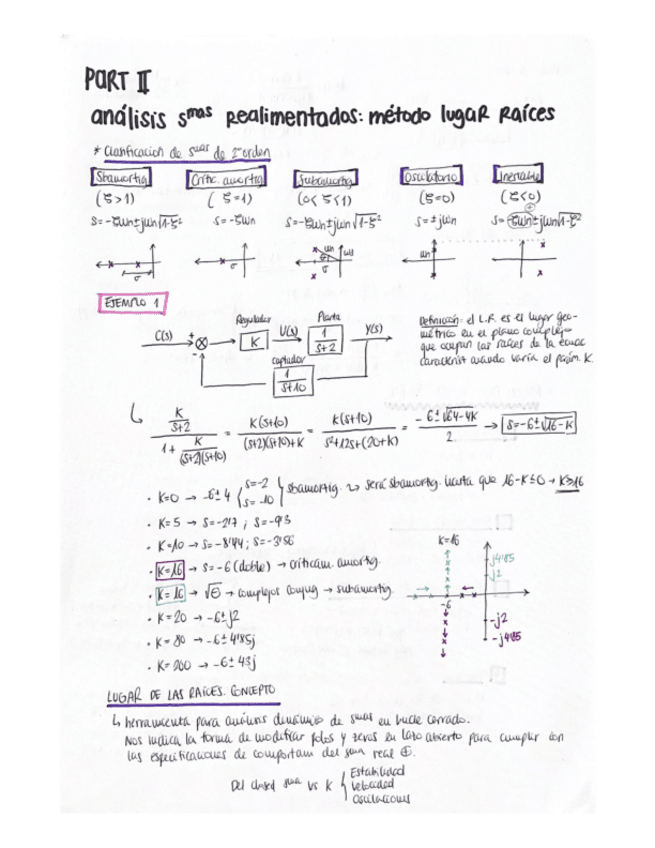 PART II
análisis smas Realimentados: método lugar Raíces
* Clasificación de smas de 2º orden
Sbamortig Crític. amortig Subamortig Oscilatorio Inestable
(ζ>1) (ζ=1) (0<ζ<1) (ζ=0) (ζ<0)
s=-ζωn±jωn√1-ζ² s=-ζωn s=-ζωn±jωn√1-ζ² s=±jωn s=-ζωn±jωn√1-ζ²
σ σ ωn ωd σ ωn
EJEMPLO 1
Regulador Planta
C(s) + - K U(s) 1/(s+2) Y(s)
captador
1/(s+10)
Definición: el L.R. es el lugar geo-
métrico en el plano complejo
que ocupan las raíces de la ecuac
característ cuando varía el parám. K.
(K/(s+2))/(1+K/((s+2)(s+10))) = K(s+10)/((s+2)(s+10)+K) = K(s+10)/(s²+12s+(20+K)) = (-6±√64-4K)/2 → s=-6±√16-K
· K=0 → -6±4 { s=-2 s=-10 } sbamortig. → será sbamortig. hasta que 16-K≤0 → K≥16
· K=5 → s=-2'7 ; s=-9'3
· K=10 → s=-8'44 ; s=-3'56
· K=16 → s=-6 (doble) → críticam. amortig.
· K=16 → √⊖ → complejos conjug → subamortig.
· K=20 → -6±j2
· K=80 → -6±4'85j
· K=200 → -6±43j
K=16
j4'85
j2
-6
-j2
-j4'85
LUGAR DE LAS RAÍCES. CONCEPTO
↳ herramienta para análisis dinámico de smas en bucle cerrado.
Nos indica la forma de modificar polos y zeros en lazo abierto para cumplir con
las especificaciones de comportam del sma real ⊕.
Del closed sma vs K { Estabilidad
Velocidad
Oscilaciones